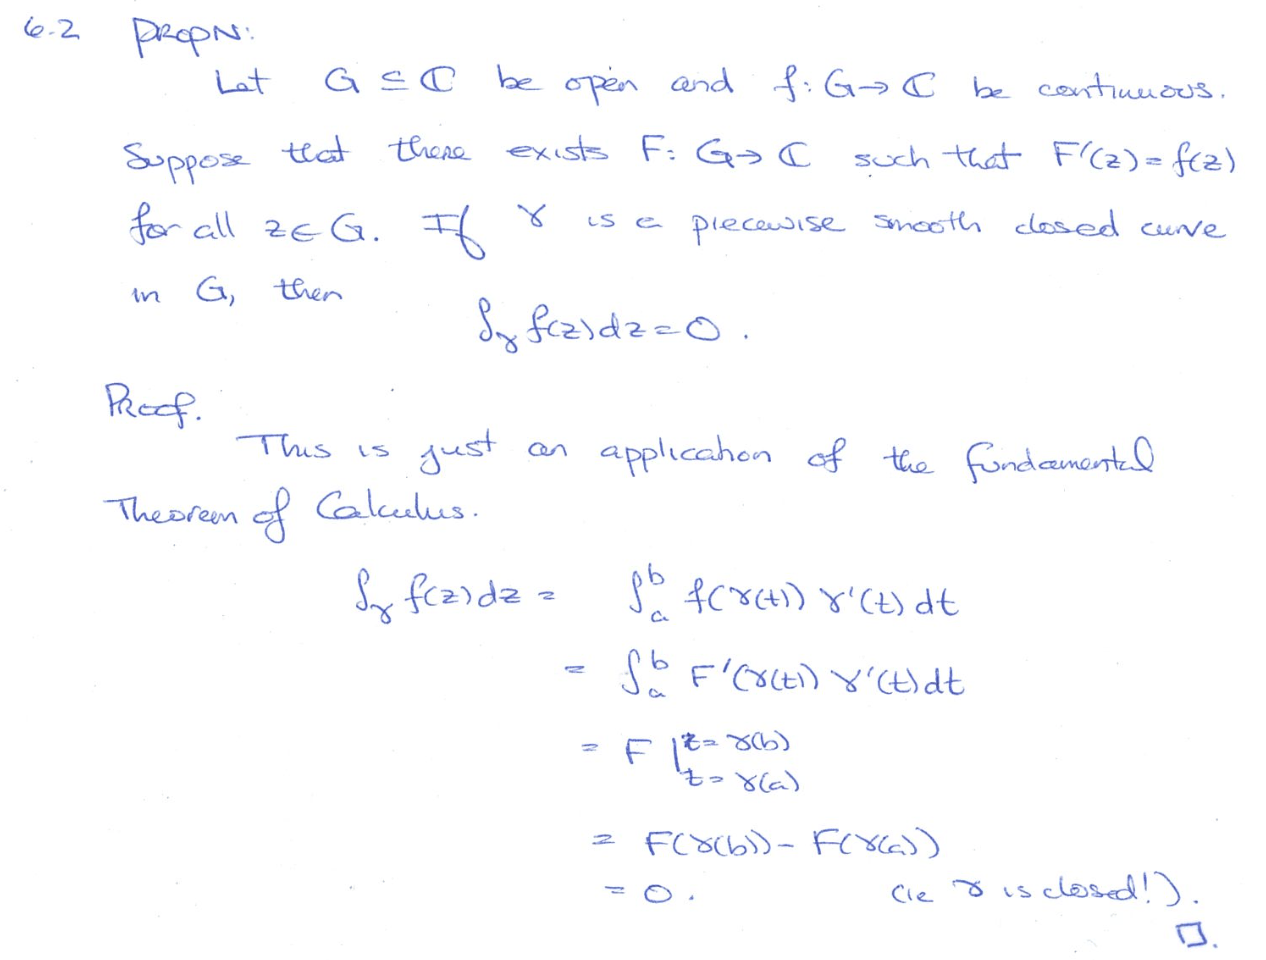 6.2 PROPN:
Let G ⊆ ℂ be open and f: G → ℂ be continuous.
Suppose that there exists F: G → ℂ such that F'(z) = f(z)
for all z ∈ G. If γ is a piecewise smooth closed curve
in G, then
∫_γ f(z) dz = 0.
Proof.
This is just an application of the fundamental
Theorem of Calculus.
∫_γ f(z) dz = ∫_a^b f(γ(t)) γ'(t) dt
= ∫_a^b F'(γ(t)) γ'(t) dt
= F |^{z = γ(b)}
_{z = γ(a)}
= F(γ(b)) - F(γ(a))
= 0. (ie γ is closed!).
□.